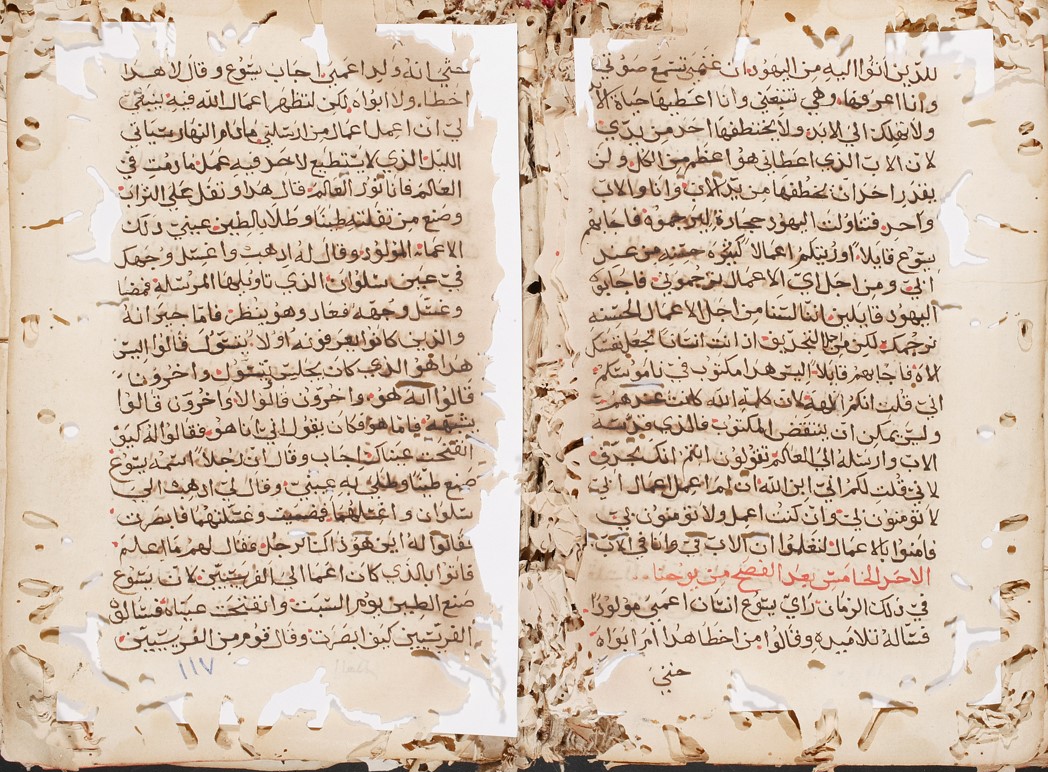 للذين اتوا اليه من اليهود ان غنمي تسمع صوتي
وانا اعرفها وهي تتبعني وانا اعطيها حياة الا
ولا تهلك الي الابد ولا يختطفها احد من يدي
لان الاب الذي اعطاني هو اعظم من الكل ولن
يقدر احد ان يخطفها من يد الاب وانا والاب
واحد فتناولت اليهود حجارة ليرجموه فاجابهم
يسوع قايلا اوريتكم اعمالا كثيره حسنه من عند
ابي ومن اجل اي الاعمال ترجموني فاجابوه
اليهود قايلين اننا لسنا من اجل الاعمال الحسنه
نرجمك لكن من اجل التجديف اذ انت انسانا تجعل نفسك
الاه فاجابهم قايلا اليس هدا مكتوب في ناموسكم
اني قلت انكم الهة فان كلمة الله كانت عندهم
وليس يمكن ان ينتقض المكتوب فالذي قدسه
الاب وارسله الي العالم تقولون انتم انك تجدف
لاني قلت لكم اني ابن الله ان لم اعمل اعمال ابي
لا تومنون بي وان كنت اعمل ولا تومنون بي
فامنوا بالاعمال لتعلموا ان الاب في وانا في الاب
الاحد الخامس بعد الفصح من يوحنا
في ذلك الزمان راي يسوع انسان اعمي مولودا
فسالة تلاميده وقالوا من اخطا هدا ام ابواه
حتي
حتي انه ولد اعمي اجاب يسوع وقال لا هدا
اخطا ولا ابواه لكن لتظهر اعمال الله فيه ينبغي
لي ان اعمل اعمال من ارسلني مادام النهار سياتي
الليل الذي لا يستطيع لاحد فيه عمل ما دمت في
العالم فانا نور العالم قال هدا وتفل علي التراب
وصنع من تفلته طينا وطلا بالطين عيني ذلك
الاعما المولود وقال له ادهب واغسل وجهك
في عين سلوان الذي تاويلها المرسله فمضا
وغسل وجهه فعاد وهو ينظر فاما جيرانه
والذين كانوا يعرفونه اولا يتسول قالوا اليس
هدا هو الذي كان يجلس يتسول واخرون
قالوا انه هو واخرون قالوا لا واخرون قالوا
يشبهه فاما هو فكان يقول اني انا هو فقالوا له كيف
انفتحت عيناك اجاب وقال ان رجلا اسمه يسوع
صنع طينا وطلي به عيني وقال لي ادهب الي
سلوان واغسلهما فمضيت وغسلتهما فابصرت
فقالوا له اين هو ذاك الرجل فقال لهم ما اعلم
فاتوا بالذي كان اعما الي الفريسين لان يسوع
صنع الطين يوم السبت وانفتحت عيناه فساله
الفريسيين كيف ابصرت وقال قوم من الفريسيين
١١٧